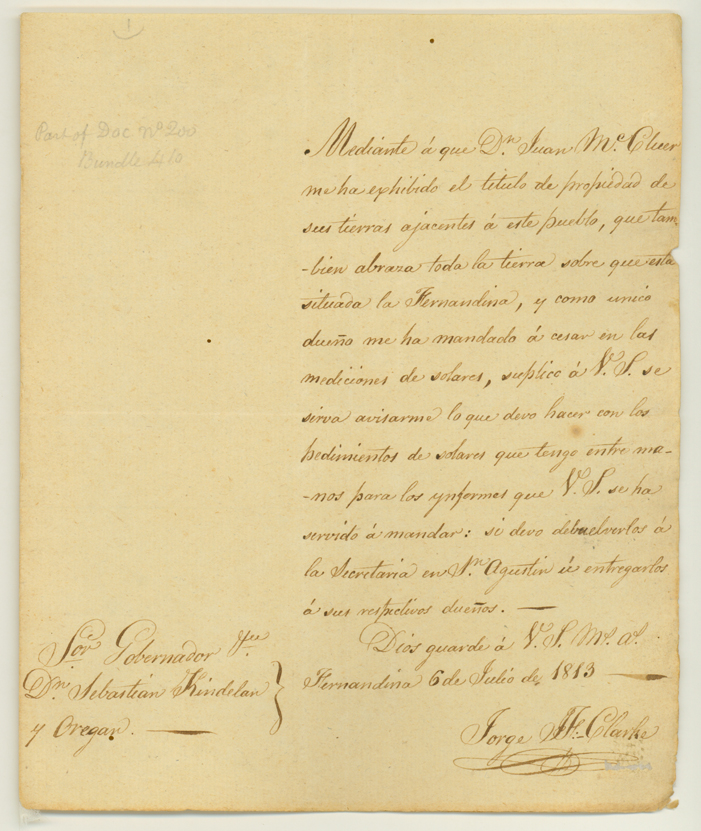 Part of Doc Nº 200
Bundle 410
Mediante á que Dn. Juan Mc. Cluer
me ha exhibido el titulo de propiedad de
sus tierras ajacentes á este pueblo, que tam-
-bien abraza toda la tierra sobre que esta
situada la Fernandina, y como unico
dueño me ha mandado á cesar en las
mediciones de solares, suplico á V. S. se
sirva avisarme lo que devo hacer con los
pedimientos de solares que tengo entre ma-
-nos para los ynformes que V. S. se ha
servido á mandar: si devo debuelverlos á
la Secretaria en Sn. Agustin ú entregarlos
á sus respectivos dueños. —
Dios guarde á V. S. Ms. as.
Fernandina 6 de Julio de 1813 —
Jorge J. F. Clarke
Sor. Gobernador
Dn. Sebastian Kindelan
y Oregan. —